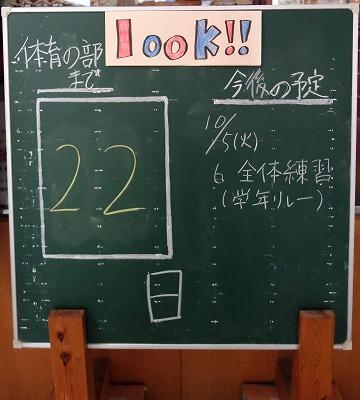 look!!
体育の部
まで
22
日
今後の予定
10/5(火)
6 全体練習
(学年リレー)